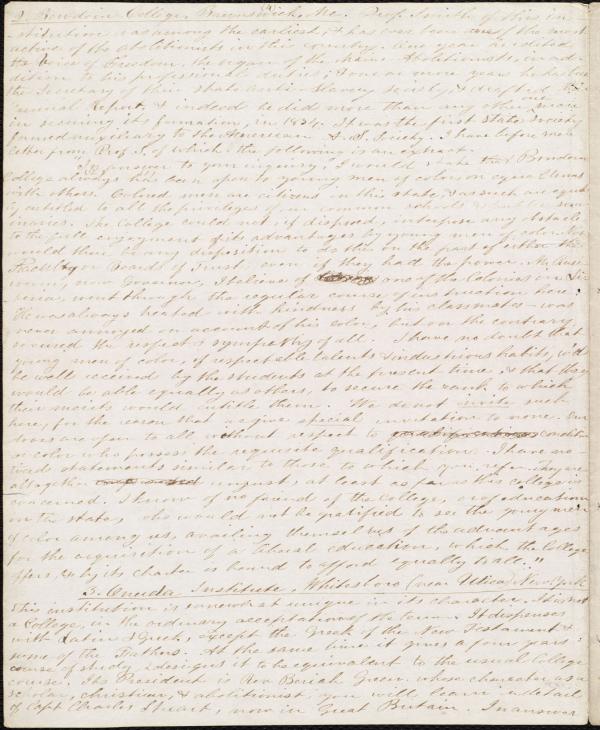 2. Bowdoin College, Brunswick, Me. Prof. Smith of this in-
stitution was among the earliest, & has ever been one of the most
active of the abolitionists in this country. One year he edited
the Advocate of Freedom, the organ of the Maine Abolitionists, in ad-
dition to his professional duties; & one or more years he has been
the Secretary of their state Anti-Slavery Society, & drafted
annual Report, & indeed he did more than any other man
in securing its formation, in 1834. It was the first State Society
formed auxiliary to the American A. S. Society. I have before me a
letter from Prof. S. of which the following is an extract.
"In answer to your inquiry, I would state that Bowdoin
College always has been open to young men of color on equal terms
with others. Colored men are citizens in this state, & as such are equal-
ly entitled to all the privileges of our common schools & sem-
inaries. The College could not, if disposed, interpose any obstacle
to the full enjoyment of its advantages by young men of color. Nor
would there be any disposition to do this on the part of either the
Faculty or Boards of Trust even if they had the power. Mr. Russ-
wurm, now Governor, I believe of one of the Colonies in Li-
beria, went through the regular course of instruction here.
He was always treated with kindness by his classmates – was
never annoyed on account of his color, but on the contrary
secured the respect & sympathy of all. I have no doubt that
young men of color, of respectable talents & industrious habits, w'd
be well received by the students at the present time, & that they
would be able equally as others, to secure the rank to which
their merits would entitle them. We do not invite such
here, for the reason that we give special invitation to none. Our
doors are open to all without respect to condition
or color who possess the requisite qualification. I have no-
ticed statements similar to those to which you refer. They are
altogether unjust, at least as far as this college is
concerned. I know of no friend of the college, or of education
in the state, who would not be gratified to see the young men
of color among us, availing themselves of the advantages
for the acquisition of a liberal education, which the College
offers, & by its charter is bound to afford equally to all."
3. Oneida Institute, Whitesboro (near Utica) New York
This institution is somewhat unique in its character. It is not
a College, in the ordinary acceptation of the term. It dispenses
with Latin & Greek, except the Greek of the New Testament &
some of the Fathers. At the same time it gives a four years'
course of study, & designs it to be equivalent to the usual College
course. Its President is Rev Beriah Green, whose character as a
scholar, christian, & abolitionist you will learn in detail
of Capt Charles Stuart, now in Great Britain. In answer